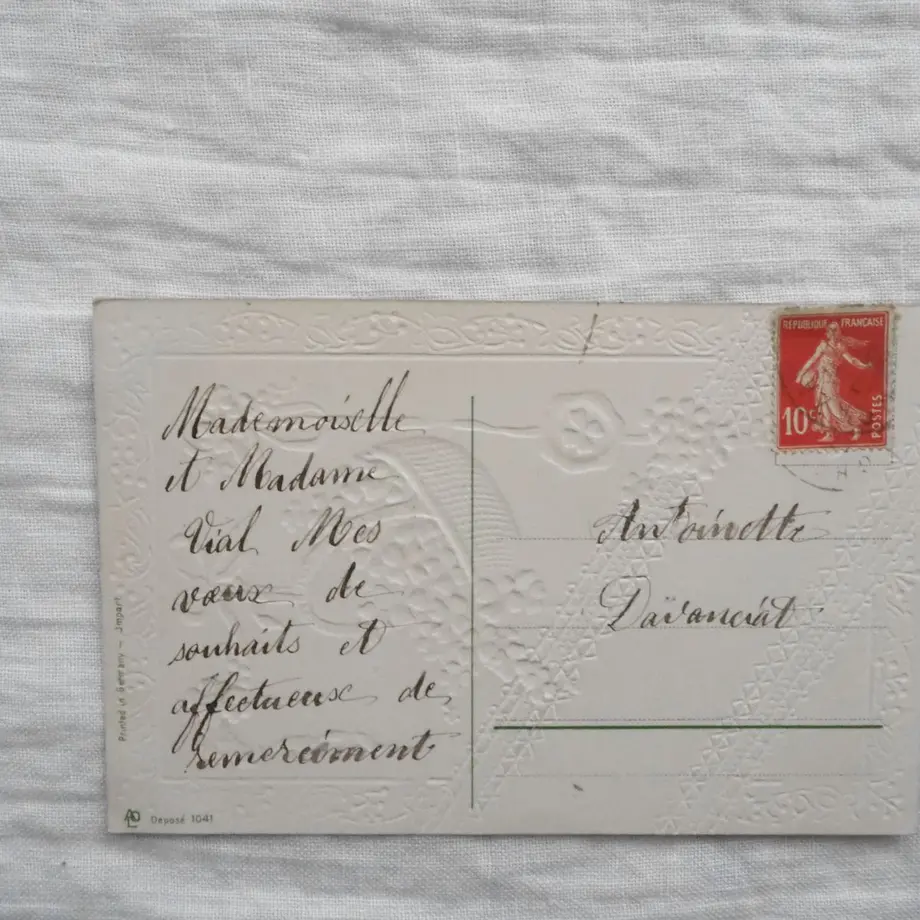 Mademoiselle
et Madame
Vial Mes
vœux de
souhaits et
affectueuse de
remerciment
Antoinette
Davanciat
RÉPUBLIQUE FRANÇAISE
10c
POSTES
Printed in Germany — Import
Deposé 1041